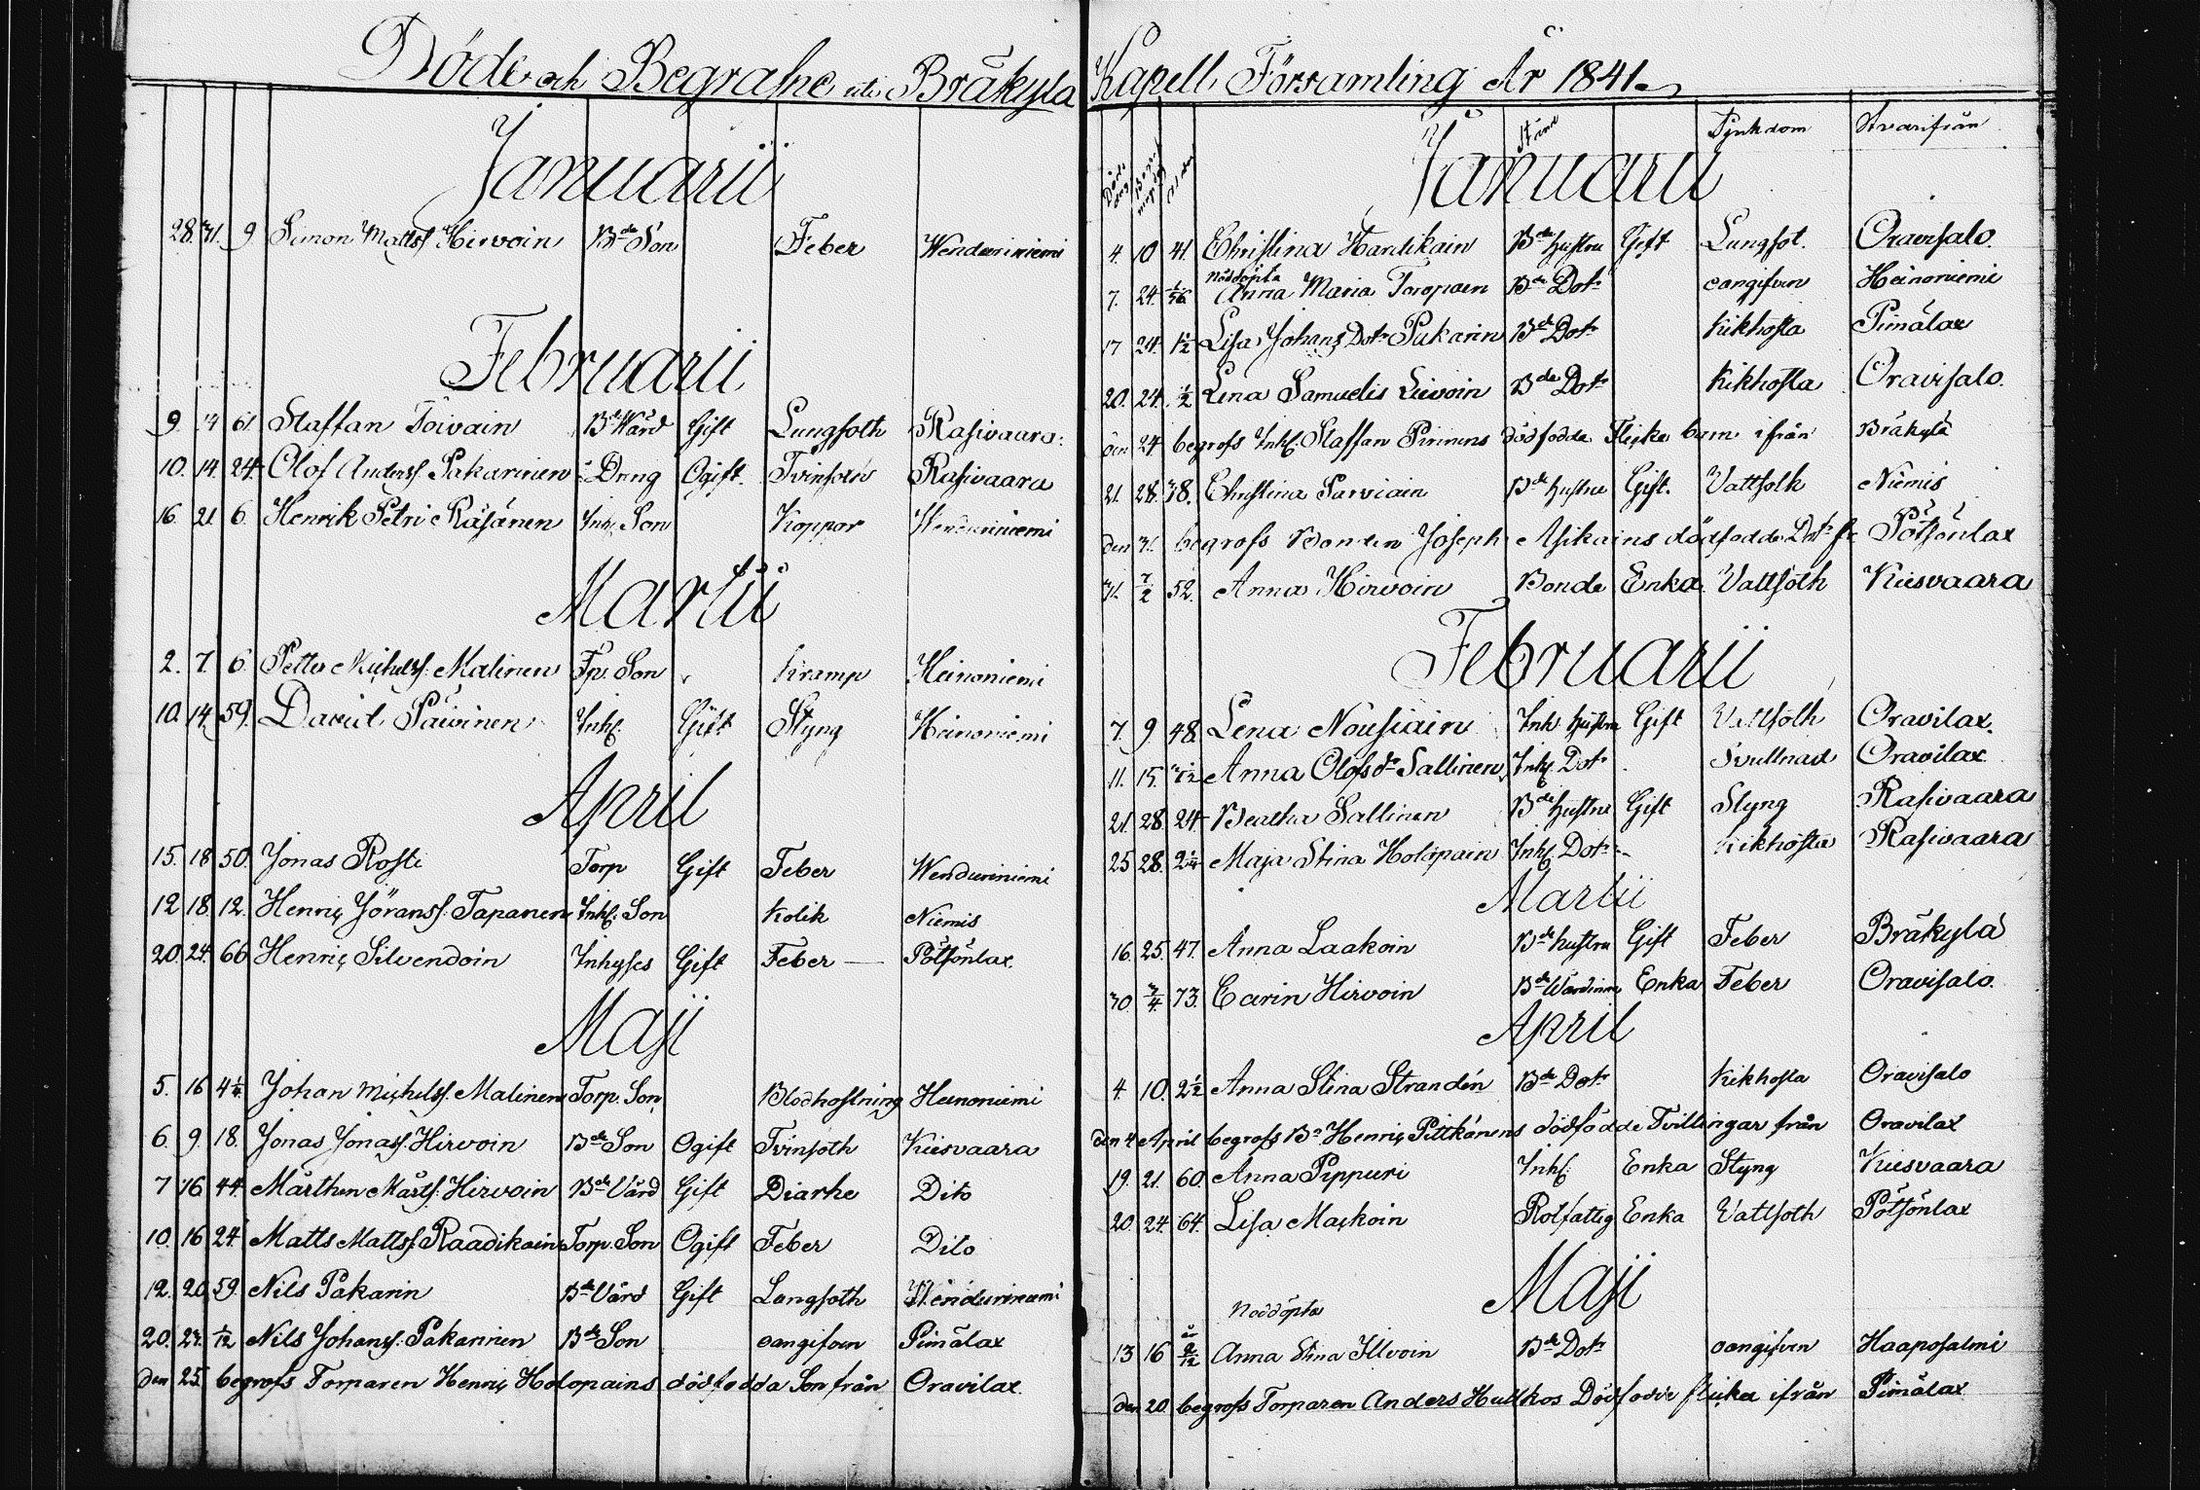 Döde och Begrafne uti Bräkylä
Januarii
28. 31. 9. Simon Mattsſ Hirvoin Bde Son Feber Wenduriniemi
Februarii
9. 14 61 Staffan Toivain Bde Wärd Gift Lungsoth Rasivaara:
10. 14. 24. Olof Andersſ Pakarinen Dräng Ogift. Tvinsoth Rasivaara
16. 21 6. Henrik Petri Räsänen Inh. Son Koppor Wenduriniemi
Martii
2. 7 6. Petter Michelsſ. Malinen Tp. Son Kramp Heinoniemi
10. 14. 59. David Päivinen Inhſ. Gift Styng Heinoniemi
April
15. 18 50. Jonas Rosti Torp Gift Feber Wenduriniemi
12 18. 12. Henric Jöransſ. Tapanen Inhſ. Son Kolik Niemis
20. 24. 66 Henric Silvendoin Inhyses Gift Feber Pötsönlax.
Maji
5. 16 4½. Johan Michelsſ. Malinen Torp. Son Blodhostning Heinoniemi
6. 9. 18. Jonas Jonasſ. Hirvoin Bde Son Ogift Tvinsoth Kiesvaara
7 16 44. Mårthen Mårtsſ. Hirvoin Bde Värd Gift Diarhe Dito
10. 16 24. Matts Mattsſ. Raadikain Torp. Son Ogift Feber Dito
12. 20. 59. Nils Pakarin Bde Värd Gift Lungsoth Wenduriniemi
20. 23. 1/12 Nils Johansſ. Pakarinen Bde Son oangifven Pimälax
den 25. begrofs Torparen Henric Holopains dödfödda Son från Oravilax.
Kapell Församling År 1841.
Död dag Begraf ningsdag Ålder Stånd Sjukdom Hvarifrån
Januarii
4. 10 41. Christina Hardikain Bde Hustru Gift Lungsot. Oravisalo.
Nöddöpta
7. 24. 1/56 Anna Maria Toropaen Bde Dotr oangifven Heinoniemi
17 24. 1½ Lisa Johans Dotr Pukarin Bde Dotr Kikhosta Pimälax
20. 24. ½ Lena Samuelis Lievoin Bde Dotr Kikhosta Oravisalo.
den 24 begrofs Inhſ. Staffan Pirinens dödfödda Flicke barn ifrån Bräkylä
21. 28. 38. Christina Parviain Bde Hustru Gift. Vattsoth Niemis
den 31. begrofs Bonden Joseph Asikains dödfödde Dotr fr Pötsönlax
31. 7/2 52. Anna Hirvoin Bonde Enka Vattsoth Kiesvaara
Februarii
7. 9. 48 Lena Nousiain Inh Hustru Gift Vattsoth Oravilax.
11. 15. Anna Olofs dr Sallinen Inhſ. Dotr Svullnad Oravilax
21. 28. 24 Beatha Sallinen Bde Hustru Gift Styng Rasivaara
25 28. 2¼ Maja Stina Holopain Inhſ Dotr Kikhosta Rasivaara
Martii
16. 25. 47. Anna Laakoin Bde Hustru Gift Feber Bräkylä
30 3/4. 73. Carin Hirvoin Bde Wärdinna Enka Feber Oravisalo.
April
4. 10. 2½ Anna Stina Strandén Bde Dotr Kikhosta Oravisalo
den 4 April begrofs Bn Henric Pittkänens dödfödde Tvillingar från Oravilax
19. 21. 60. Anna Pippuri Inhſ. Enka Styng Kiesvaara
20. 24. 64. Lisa Mackoin Rotfattig Enka Vattsoth Pötsönlax
Maji
Nöddöpta
13 16 2/12 Anna Stina Illvoin Bde Dotr oangifven Haaposalmi
den 20. begrofs Torparen Anders Hulkos Dödfödde flicka ifrån Pimälax